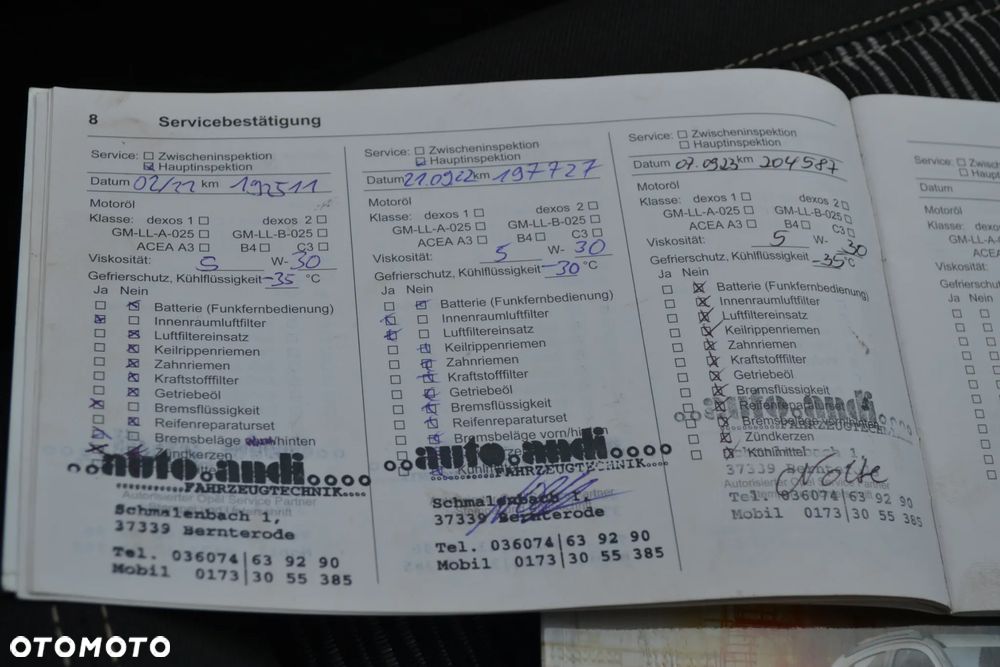 8 Servicebestätigung
Service: Zwischeninspektion
Hauptinspektion
Datum 02/22 km 192511
Motoröl
Klasse: dexos 1 dexos 2
GM-LL-A-025 GM-LL-B-025
ACEA A3 B4 C3
Viskosität: 5 W- 30
Gefrierschutz, Kühlflüssigkeit -35 °C
Ja Nein
Batterie (Funkfernbedienung)
Innenraumluftfilter
Luftfiltereinsatz
Keilrippenriemen
Zahnriemen
Kraftstofffilter
Getriebeöl
Bremsflüssigkeit
Reifenreparaturset
Bremsbeläge /hinten
Zündkerzen
auto.andi....
FAHRZEUGTECHNIK....
Autorisierter Opel Service Partner
Schmalenbach 1,
37339 Bernterode
Tel. 036074|63 92 90
Mobil 0173|30 55 385
Service: Zwischeninspektion
Hauptinspektion
Datum 21.09.22 km 197727
Motoröl
Klasse: dexos 1 dexos 2
GM-LL-A-025 GM-LL-B-025
ACEA A3 B4 C3
Viskosität: 5 W- 30
Gefrierschutz, Kühlflüssigkeit -30 °C
Ja Nein
Batterie (Funkfernbedienung)
Innenraumluftfilter
Luftfiltereinsatz
Keilrippenriemen
Zahnriemen
Kraftstofffilter
Getriebeöl
Bremsflüssigkeit
Reifenreparaturset
Bremsbeläge vorn/hinten
auto.andi....
FAHRZEUGTECHNIK....
Schmalenbach 1,
37339 Bernterode
Tel. 036074|63 92 90
Mobil 0173|30 55 385
Service: Zwischeninspektion
Hauptinspektion
Datum 07.0923 km 204587
Motoröl
Klasse: dexos 1 dexos 2
GM-LL-A-025 GM-LL-B-025
ACEA A3 B4 C3
Viskosität: 5 W- 30
Gefrierschutz, Kühlflüssigkeit -35°C
Ja Nein
Batterie (Funkfernbedienung)
Innenraumluftfilter
Luftfiltereinsatz
Keilrippenriemen
Zahnriemen
Kraftstofffilter
Getriebeöl
Bremsflüssigkeit
Reifenreparaturset
Bremsbeläge vorn/hinten
Zündkerzen
Kühlmittel
auto.andi....
FAHRZEUGTECHNIK
37339
Autorisierter Opel Service Partner
Tel. 036074|63 92 90
Mobil 0173|30 55 385
Service:
Datum
Motoröl
Klasse:
GM-LL-A-
ACEA
Viskosität:
Ja Nein
OTOMOTO